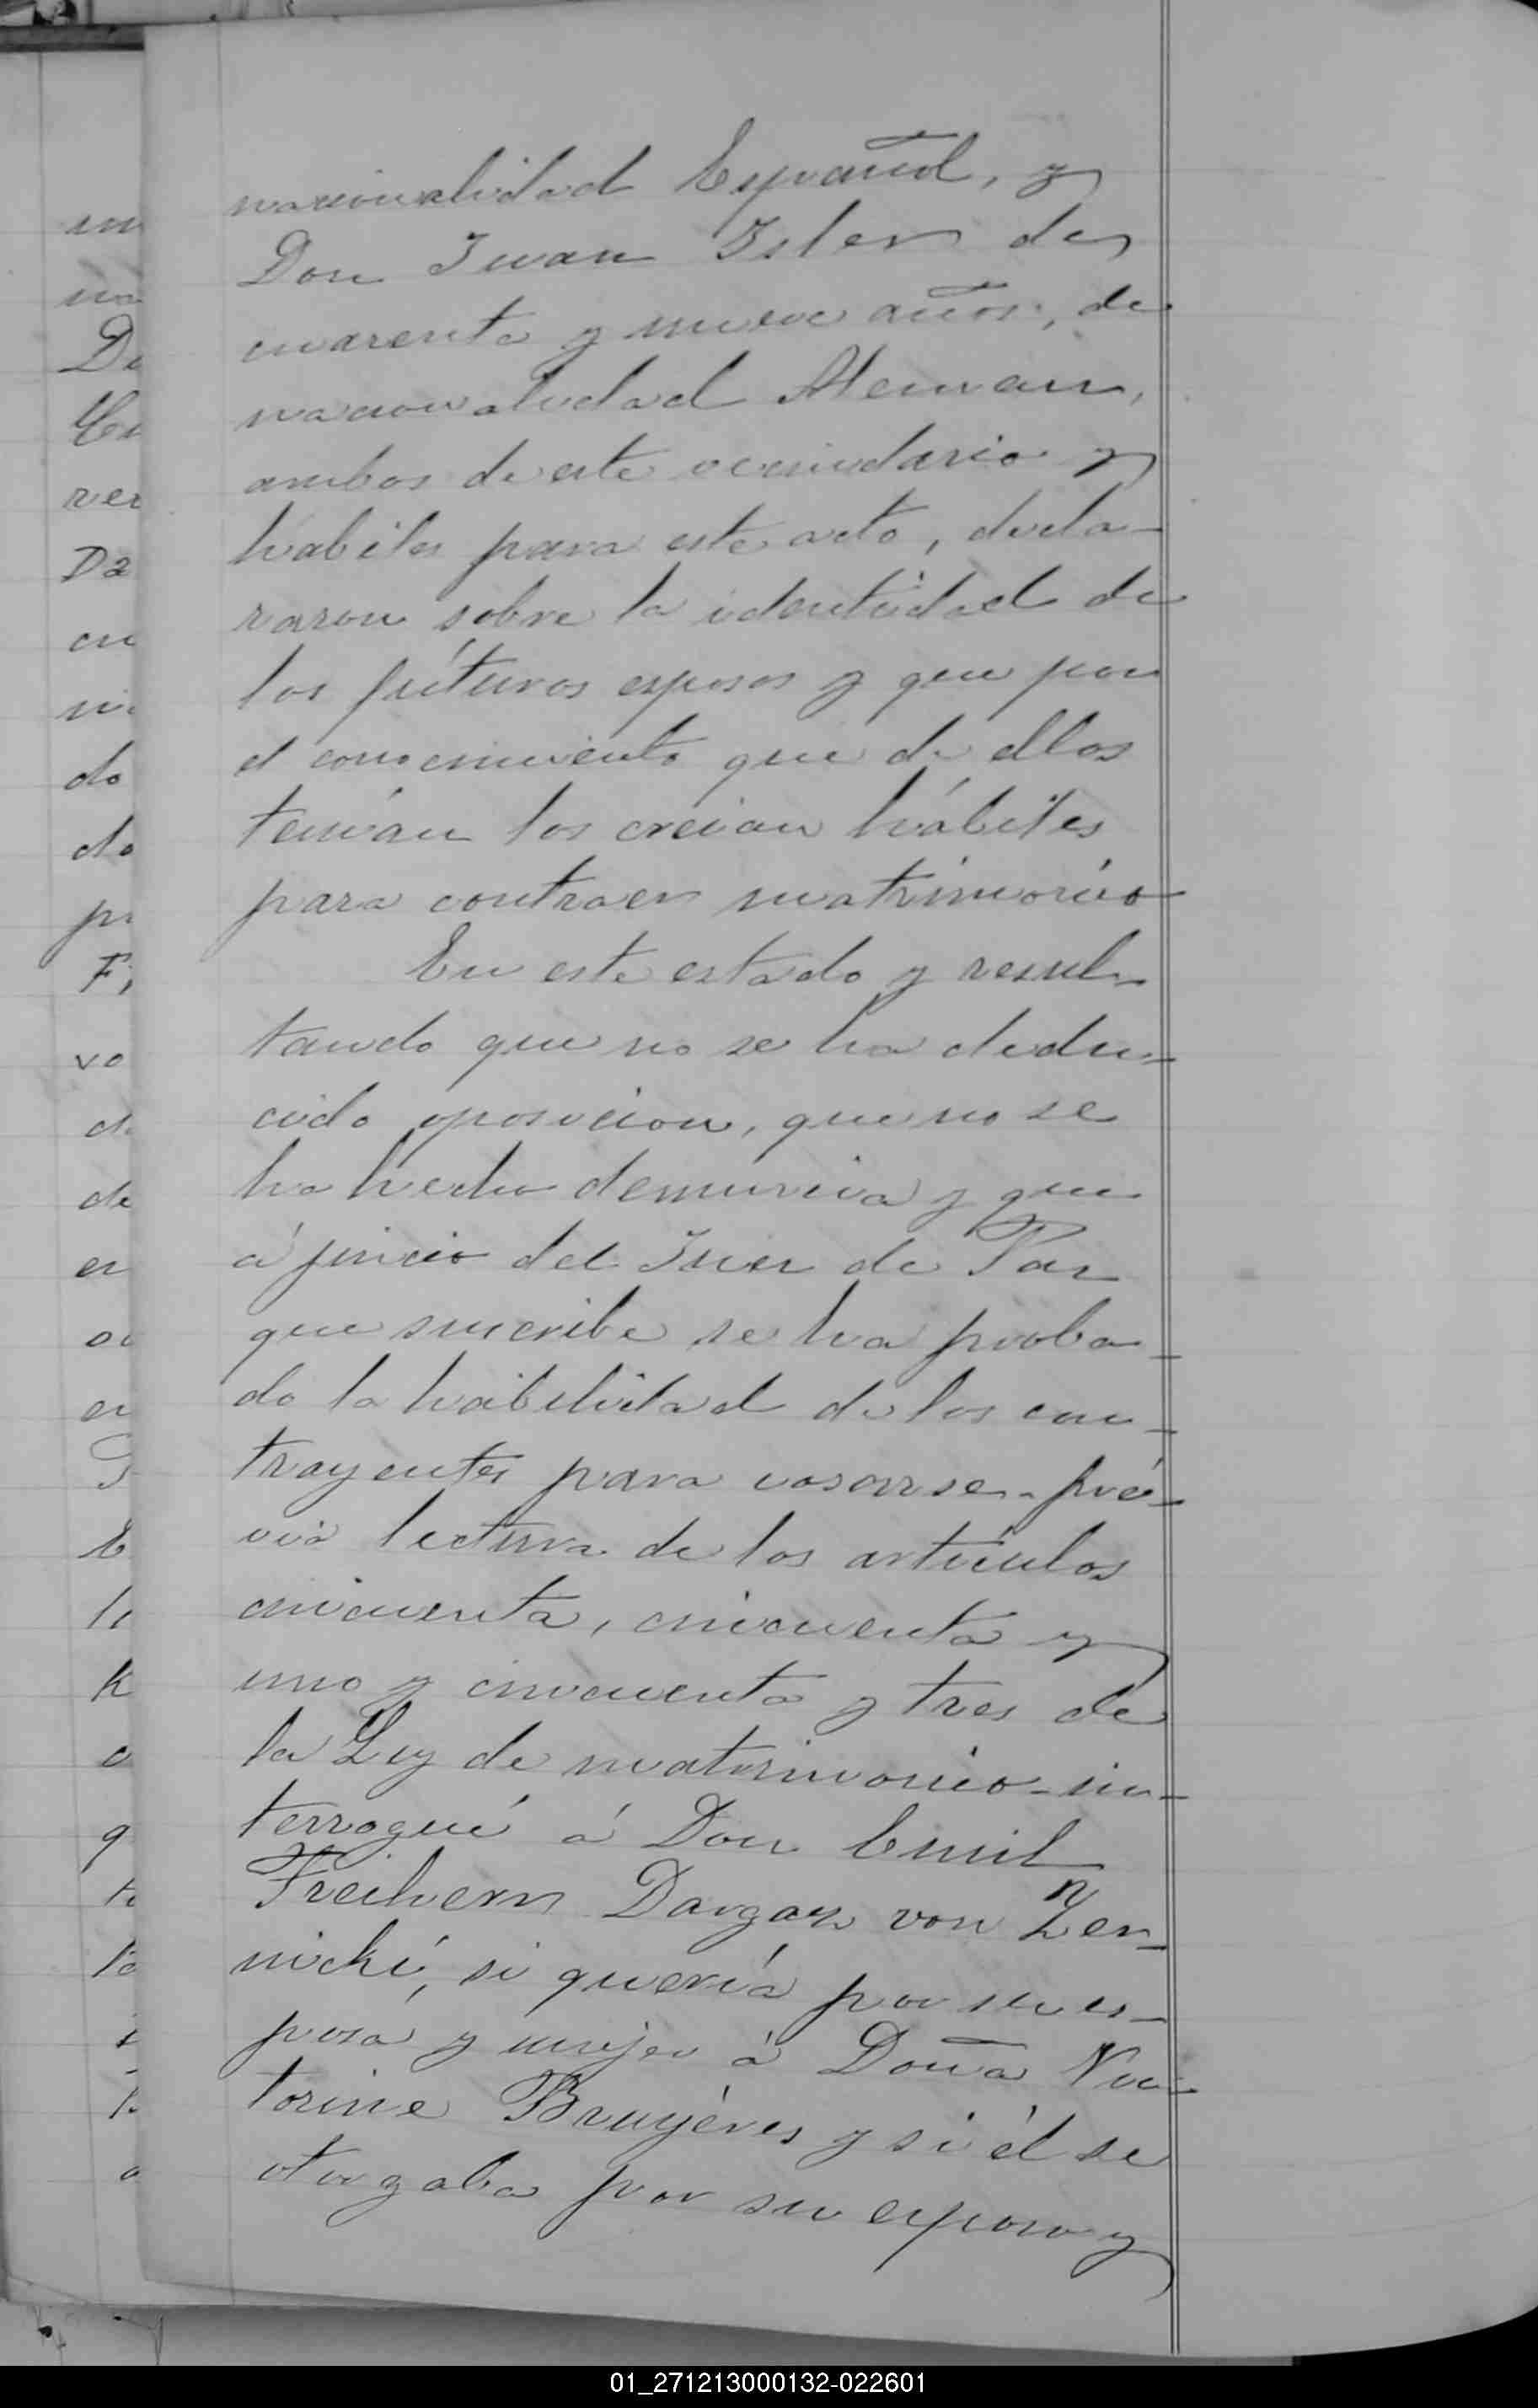 nacionalidad Español, y
Don Juan Isler de
cuarenta y nueve años, de
nacionalidad Aleman,
ambos de este vecindario y
hábiles para este acto, decla-
raron sobre la identidad de
los fúturos esposos y que por
el conocimiento que de ellos
tenían los creian hábiles
para contraer matrimonio
En este estado y resul-
tando que no se ha dedu-
cido oposicion, que no se
ha hecho denuncia y que
á juicio del Juez de Paz
que suscribe se ha proba-
do la habilidad de los con-
trayentes para casarse - pré-
via lectura de los artículos
cincuenta, cincuenta y
uno y cincuenta y tres de
la Ley de matrimonio - in-
terrogué á Don Emil
Freiherr Dargaz von Zer-
nicki, si quería por su es-
posa y mujer á Doña Vic-
torine Bruyères y si él se
otorgaba por su esposo y
in
na
De
ver
Da
cu
ni
do
do
pr
F,
vo
d
de
er
K
q
01_271213000132-022601